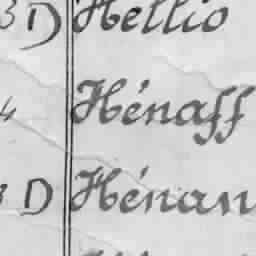 3 D Hellio
4 Hénaff
3 D Hénan